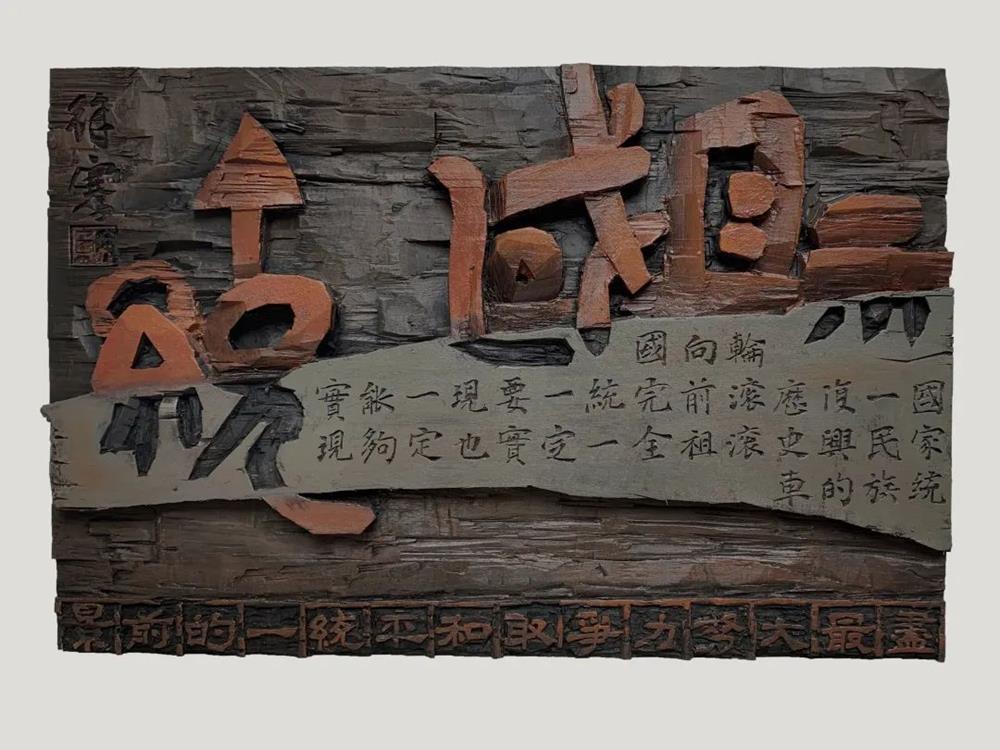 祖國統
國家統
一民族
復興的
歷史車
輪滾滾
向前祖
國完全
統一
一定
要實
現也
一定
能夠
實現
盡最大努力爭取和平統一的前景